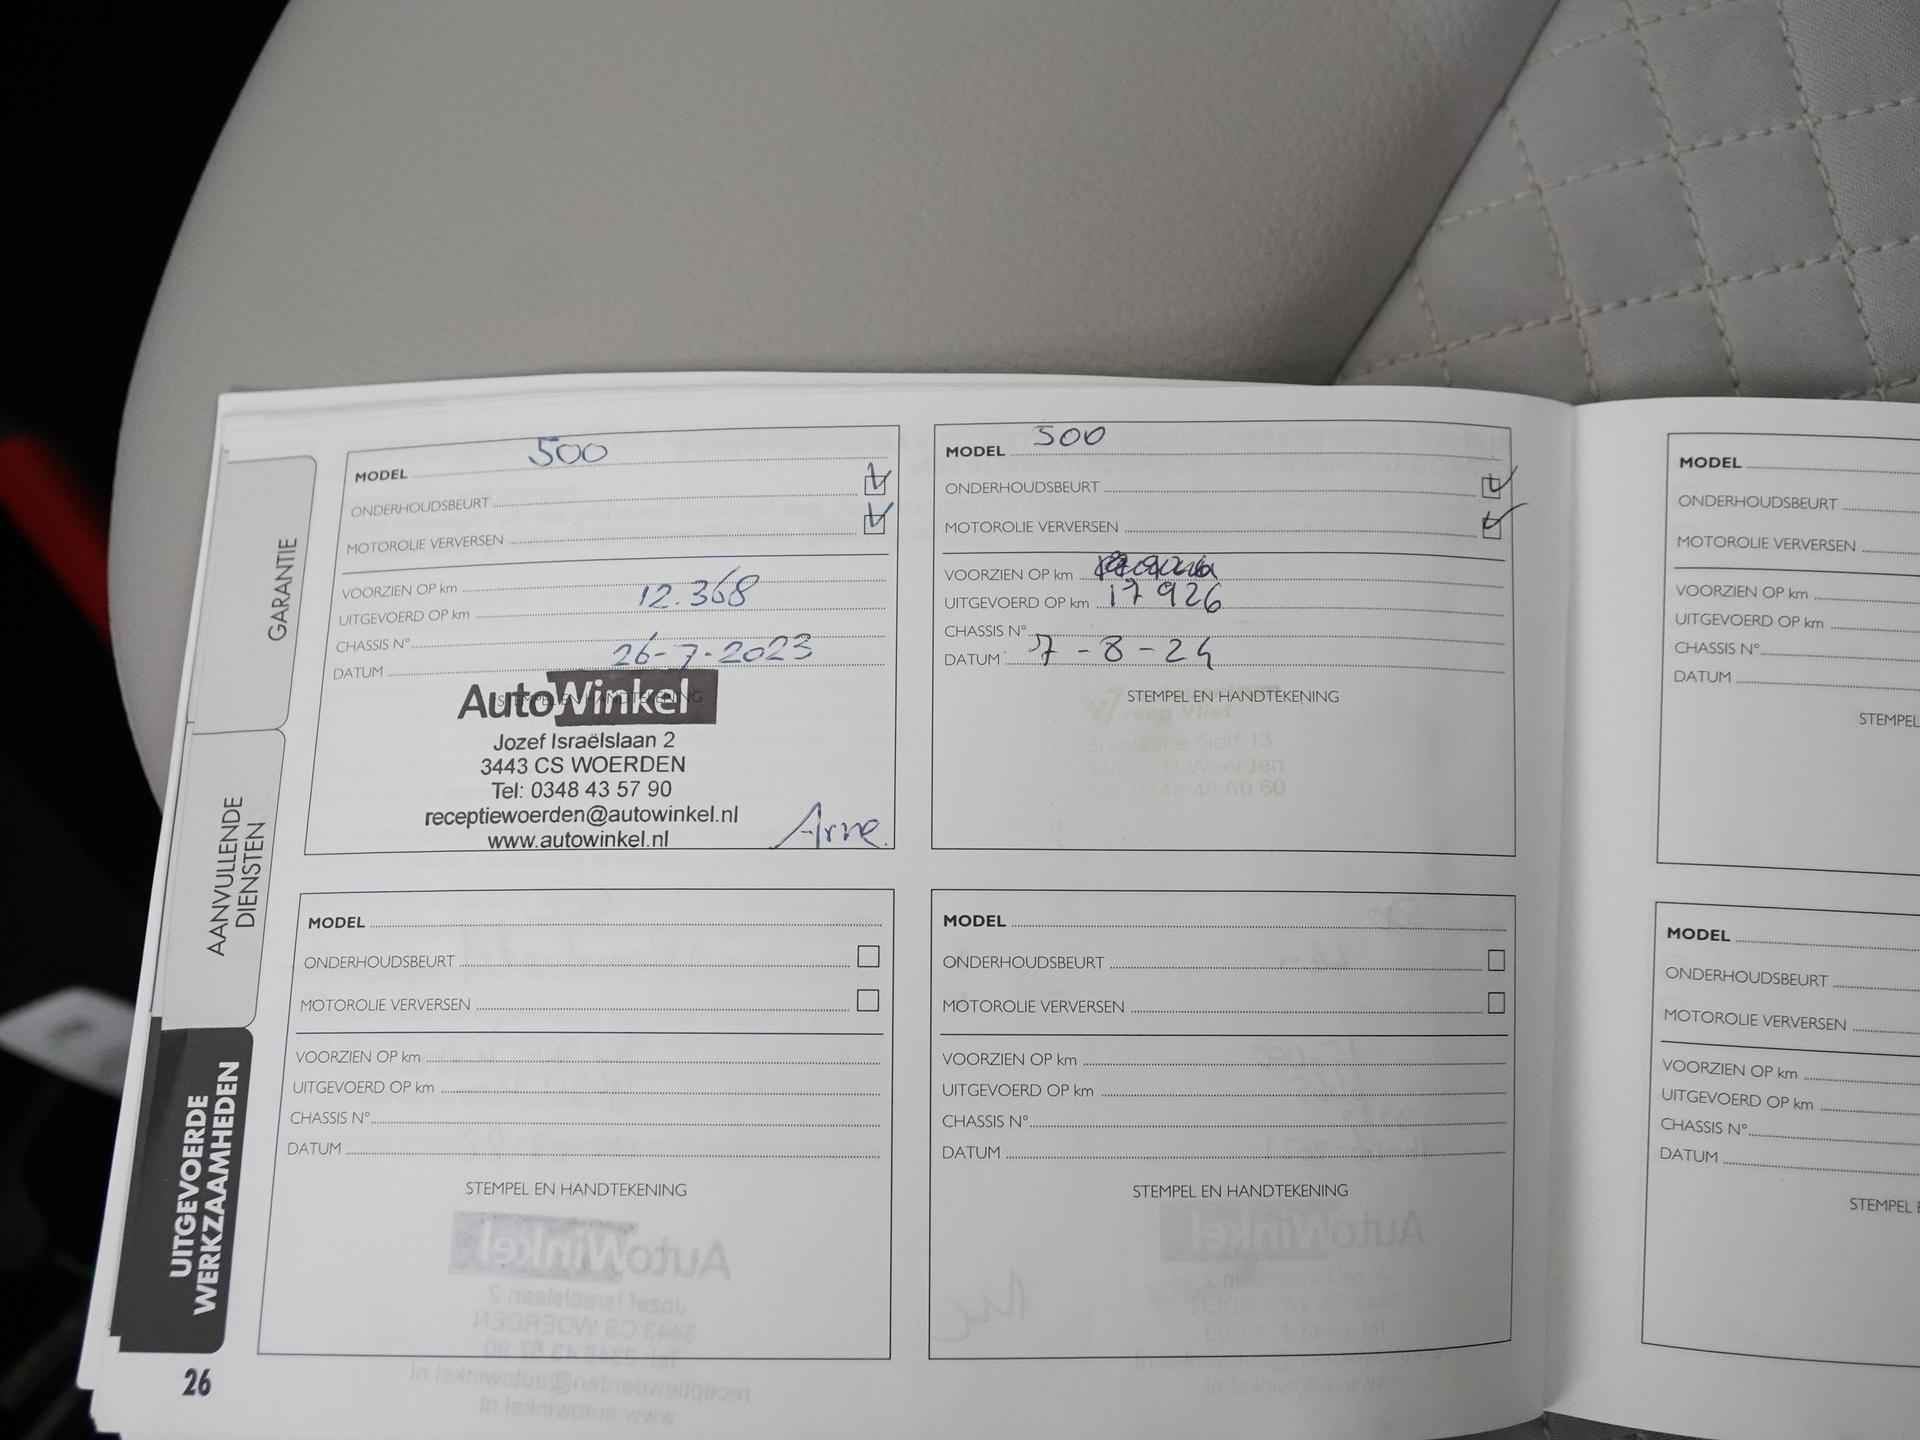 GARANTIE
AANVULLENDE
DIENSTEN
UITGEVOERDE
WERKZAAMHEDEN
26
MODEL 500
ONDERHOUDSBEURT
MOTOROLIE VERVERSEN
VOORZIEN OP km
UITGEVOERD OP km 12.368
CHASSIS N°
DATUM 26-7-2023
STEMPEL EN HANDTEKENING
AutoWinkel
Jozef Israëlslaan 2
3443 CS WOERDEN
Tel: 0348 43 57 90
receptiewoerden@autowinkel.nl
www.autowinkel.nl
Arne.
MODEL 500
ONDERHOUDSBEURT
MOTOROLIE VERVERSEN
VOORZIEN OP km
UITGEVOERD OP km 17 926
CHASSIS N°
DATUM 7-8-24
STEMPEL EN HANDTEKENING
MODEL
ONDERHOUDSBEURT
MOTOROLIE VERVERSEN
VOORZIEN OP km
UITGEVOERD OP km
CHASSIS N°
DATUM
STEMPEL EN HANDTEKENING
MODEL
ONDERHOUDSBEURT
MOTOROLIE VERVERSEN
VOORZIEN OP km
UITGEVOERD OP km
CHASSIS N°
DATUM
STEMPEL EN HANDTEKENING
MODEL
ONDERHOUDSBEURT
MOTOROLIE VERVERSEN
VOORZIEN OP km
UITGEVOERD OP km
CHASSIS N°
DATUM
STEMPEL
MODEL
ONDERHOUDSBEURT
MOTOROLIE VERVERSEN
VOORZIEN OP km
UITGEVOERD OP km
CHASSIS N°
DATUM
STEMPEL